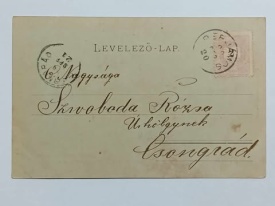 LEVELEZŐ-LAP.
Nagysága
Szvoboda Rózsa
Úrhölgynek
Csongrád.